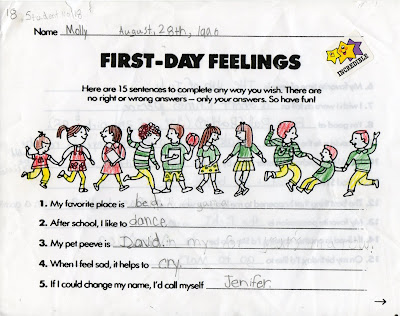 18 Student
Name Molly August, 28th, 1996
INCREDIBLE
FIRST-DAY FEELINGS
Here are 15 sentences to complete any way you wish. There are
no right or wrong answers — only your answers. So have fun!
1. My favorite place is bed.
2. After school, I like to dance
3. My pet peeve is David. in my
4. When I feel sad, it helps to cry.
5. If I could change my name, I'd call myself Jenifer.
→